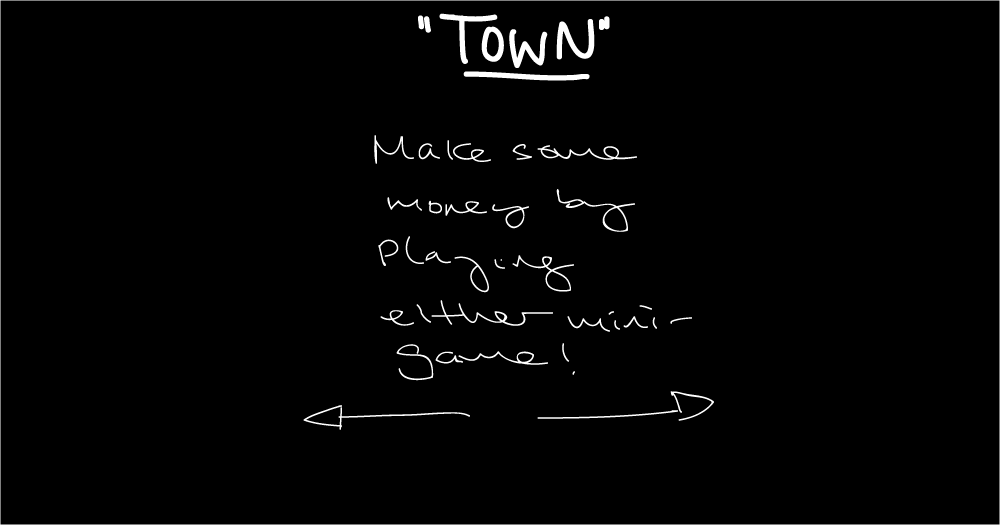 "TOWN"
Make some
money by
Playing
either mini-
game!